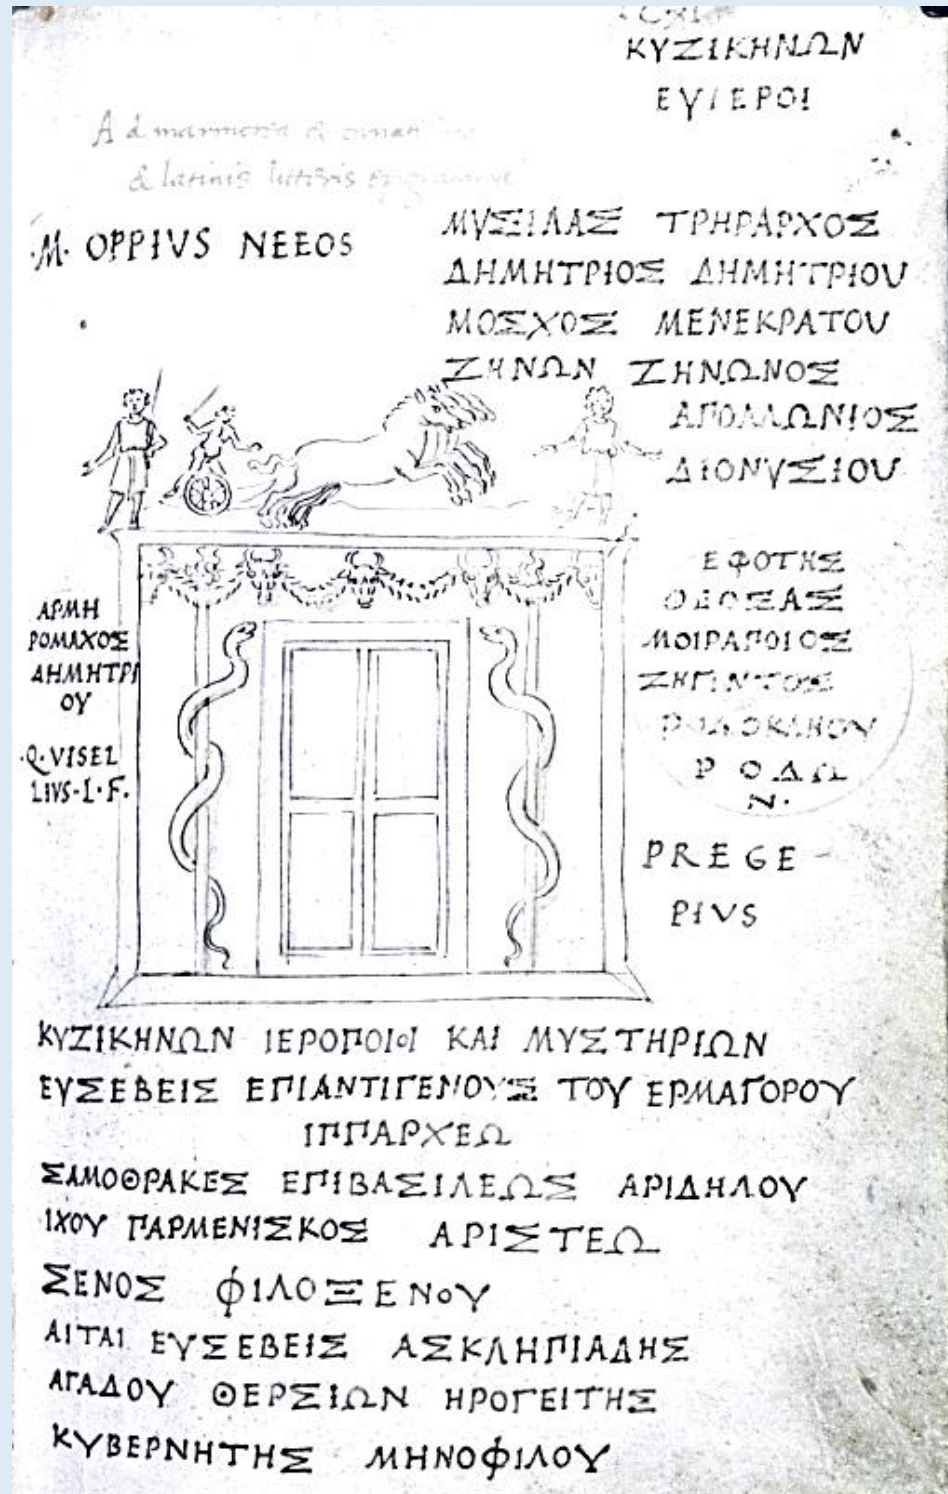 ΚΥΖΙΚΗΝΩΝ
ΕΥΙΕΡΟΙ
Ad marmorea &
& latinis litteris
·M· OPPIVS NEEOS
ΜΥΣΙΛΑΣ ΤΡΗΡΑΡΧΟΣ
ΔΗΜΗΤΡΙΟΣ ΔΗΜΗΤΡΙΟΥ
ΜΟΣΧΟΣ ΜΕΝΕΚΡΑΤΟΥ
ΖΗΝΩΝ ΖΗΝΩΝΟΣ
ΑΠΟΛΛΩΝΙΟΣ
ΔΙΟΝΥΣΙΟΥ
ΑΡΜΗ
ΡΟΜΑΧΟΣ
ΔΗΜΗΤΡΙ
ΟΥ
·Q·VISEL
LIVS·L·F·
ΕΦΟΤΗΣ
ΘΕΟΞΑΣ
ΜΟΙΡΑΠΟΙΟΣ
ΡΟΔΟΚΛΗΟΥ
ΡΟΔΩ
Ν·
PREGE-
PIVS
ΚΥΖΙΚΗΝΩΝ ΙΕΡΟΠΟΙΟΙ ΚΑΙ ΜΥΣΤΗΡΙΩΝ
ΕΥΣΕΒΕΙΣ ΕΠΙΑΝΤΙΓΕΝΟΥΣ ΤΟΥ ΕΡΜΑΓΟΡΟΥ
ΙΠΠΑΡΧΕΩ
ΣΑΜΟΘΡΑΚΕΣ ΕΠΙΒΑΣΙΛΕΩΣ ΑΡΙΔΗΛΟΥ
ΙΧΟΥ ΠΑΡΜΕΝΙΣΚΟΣ ΑΡΙΣΤΕΩ
ΞΕΝΟΣ ΦΙΛΟΞΕΝΟΥ
ΑΙΤΑΙ ΕΥΣΕΒΕΙΣ ΑΣΚΛΗΠΙΑΔΗΣ
ΑΓΑΔΟΥ ΘΕΡΣΙΩΝ ΗΡΟΓΕΙΤΗΣ
ΚΥΒΕΡΝΗΤΗΣ ΜΗΝΟΦΙΛΟΥ